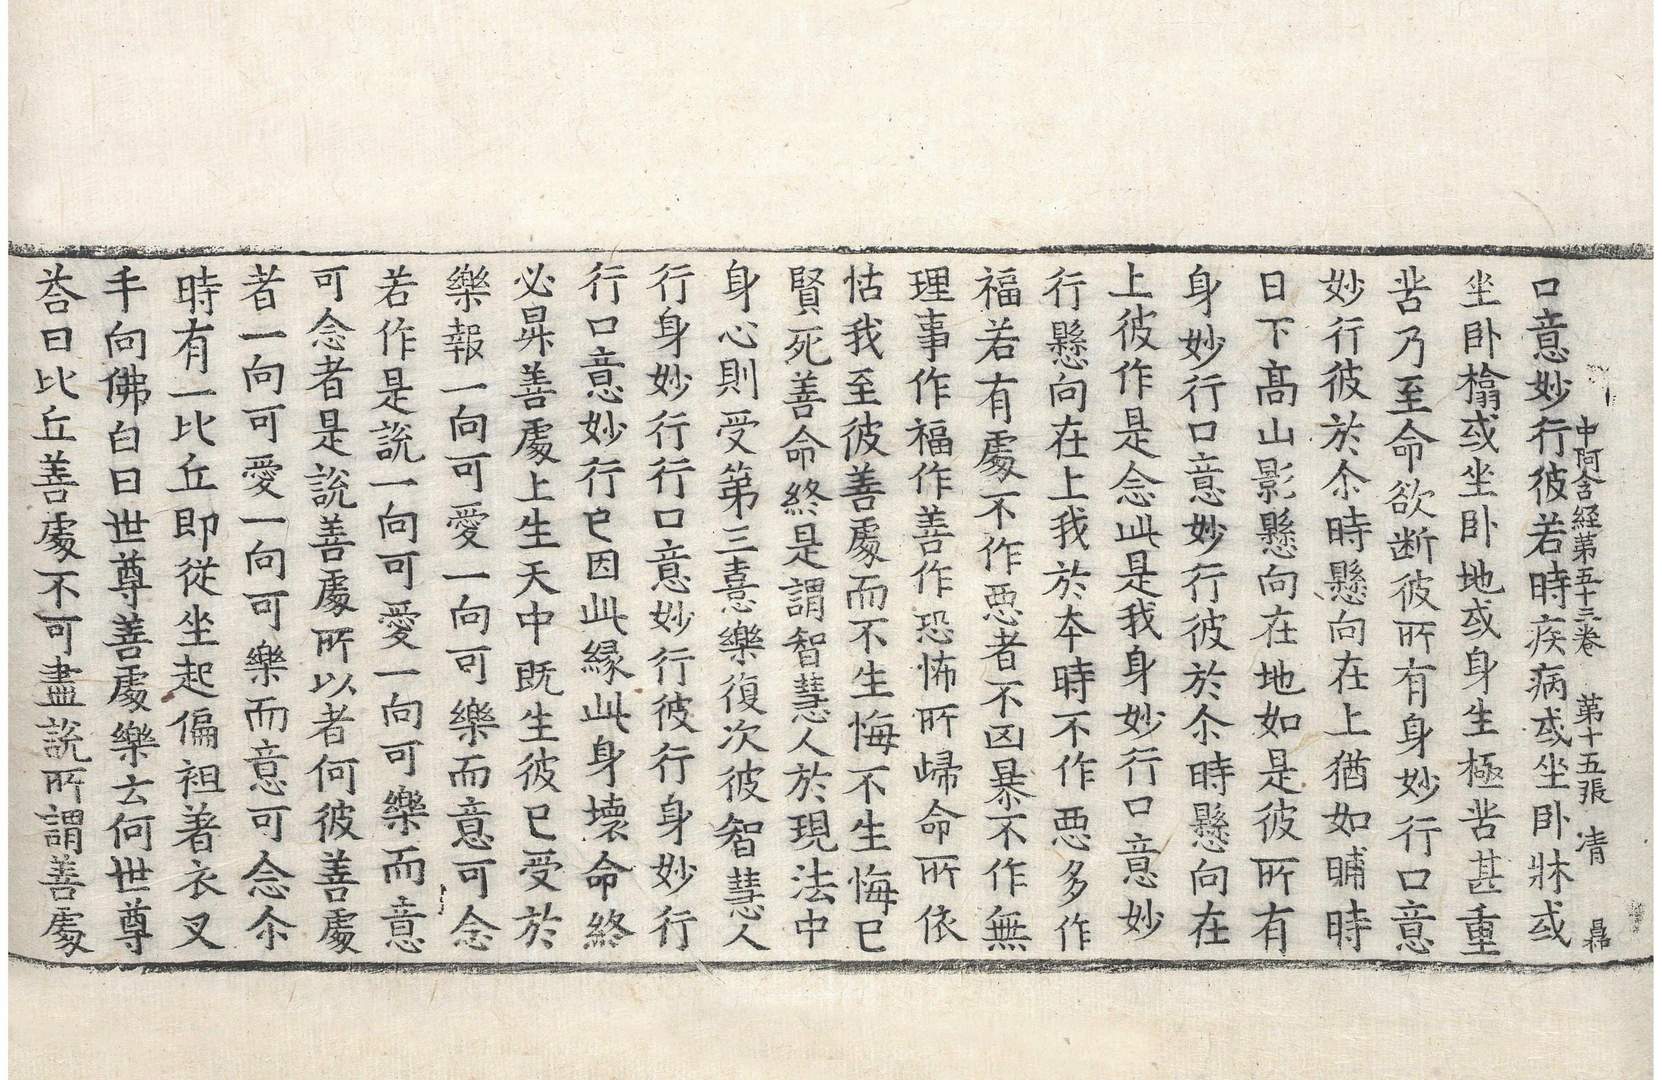 中阿含経第五十三卷 第十五張 清
口意妙行彼若時疾病或坐卧牀或
坐卧榻或坐卧地或身生極苦甚重
苦乃至命欲断彼所有身妙行口意
妙行彼於尒時懸向在上猶如晡時
日下髙山影懸向在地如是彼所有
身妙行口意妙行彼於尒時懸向在
上彼作是念此是我身妙行口意妙
行懸向在上我於本時不作悪多作
福若有處不作悪者不凶暴不作無
理事作福作善作恐怖所歸命所依
怙我至彼善處而不生悔不生悔已
賢死善命終是謂智慧人於現法中
身心則受第三憙樂復次彼智慧人
行身妙行行口意妙行彼行身妙行
行口意妙行已因此縁此身壊命終
必昇善處上生天中既生彼已受於
樂報一向可愛一向可樂而意可念
若作是說一向可愛一向可樂而意
可念者是說善處所以者何彼善處
者一向可愛一向可樂而意可念尒
時有一比丘即從坐起偏袒著衣叉
手向佛白曰世尊善處樂云何世尊
荅曰比丘善處不可盡說所謂善處